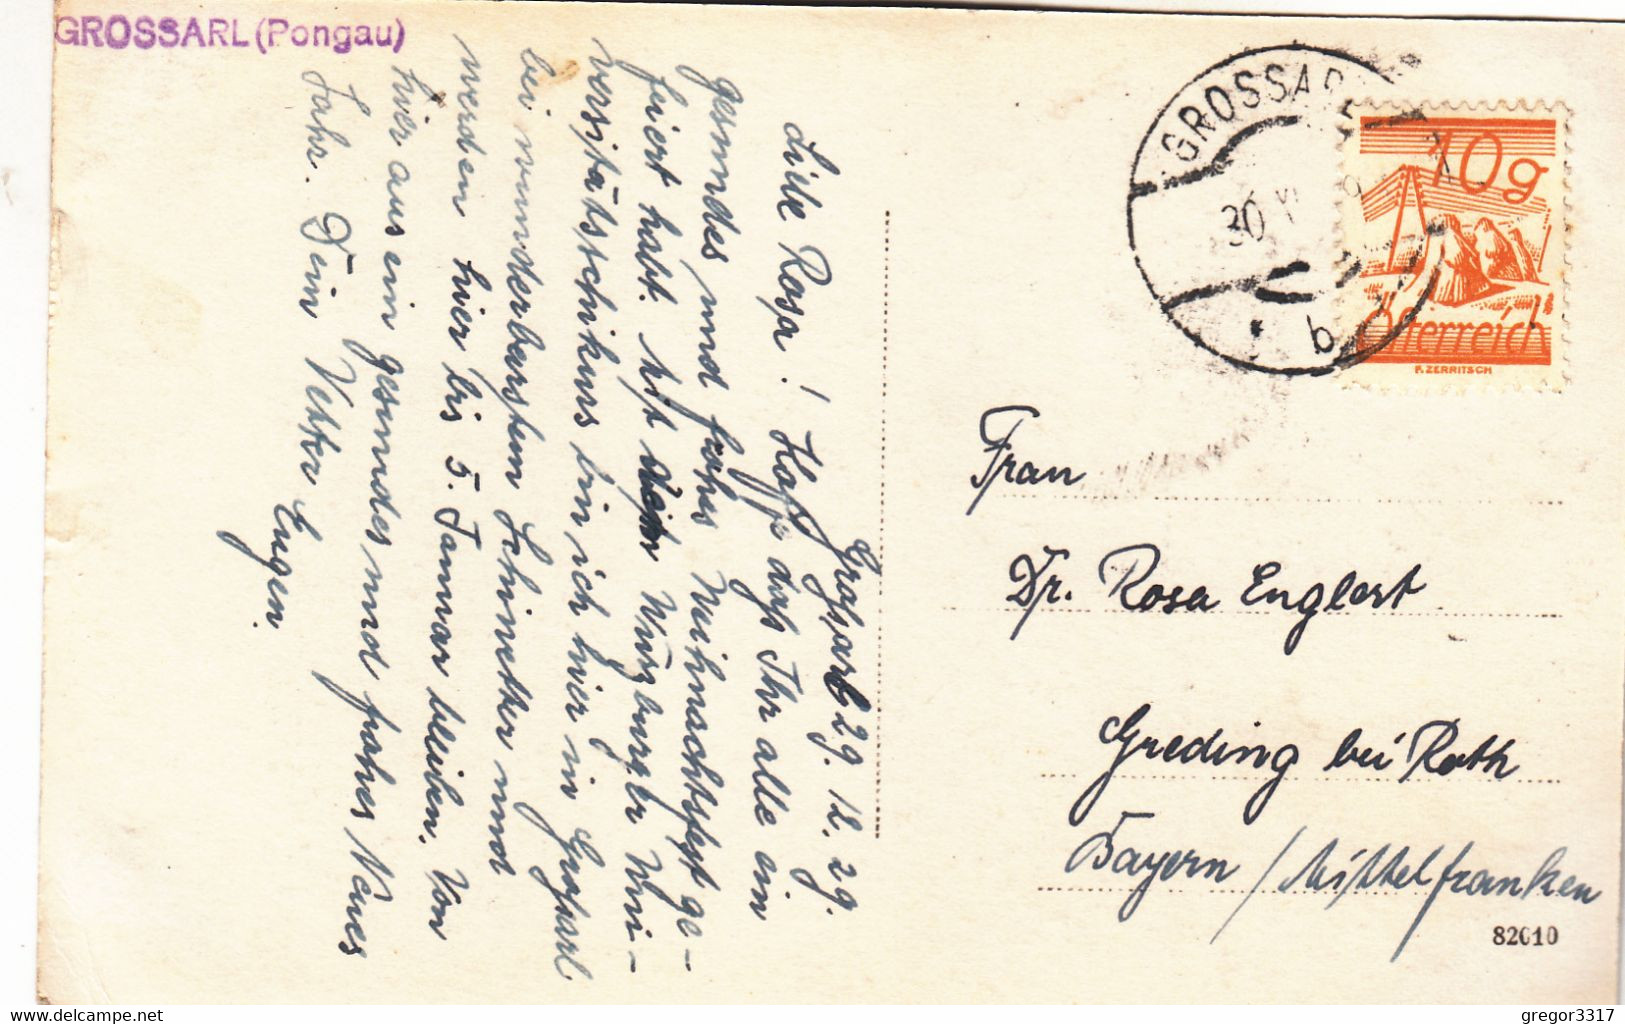 GROSSARL (Pongau)
Großarl 29. 12. 29.
Liebe Rosa! Hoffe daß Ihr alle ein
gesundes und frohes Weihnachtsfest ge-
feiert habt. Mit Würzburger Uni-
versitätsschikurs bin ich hier in Großarl
bei wunderbarsten Schiwetter und
werden hier bis 5. Januar bleiben. Von
hier aus ein gesundes und frohes Neues
Jahr. Dein Vetter Eugen.
GROSSARL
30 XI
b
10g
Österreich
F. ZERRITSCH
Frau
Dr. Rosa Englert
Greding bei Roth
Bayern / Mittelfranken
82010
delcampe.net
gregor3317